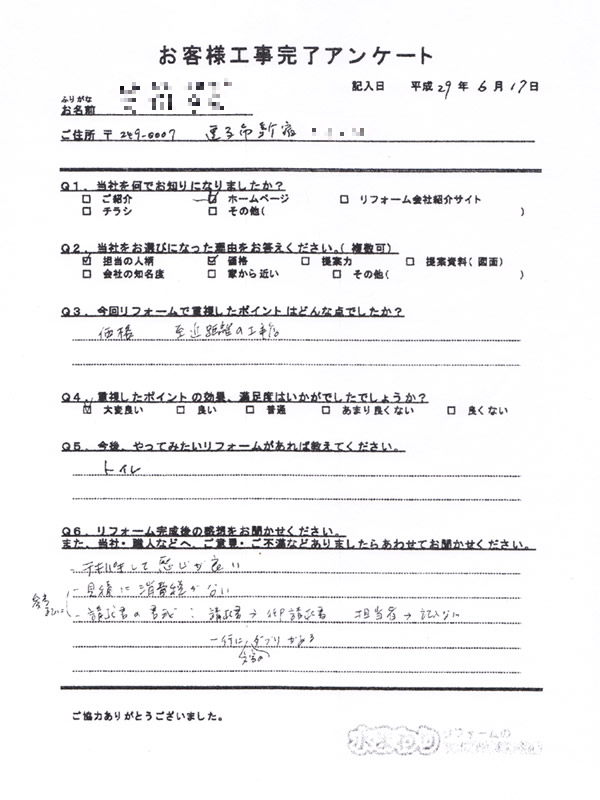 お客様工事完了アンケート
記入日 平成29年6月17日
ふりがな
お名前
ご住所 〒249-0007 逗子市新宿
Q1．当社を何でお知りになりましたか？
□ ご紹介 ☑ ホームページ □ リフォーム会社紹介サイト
□ チラシ □ その他( )
Q2．当社をお選びになった理由をお答えください。(複数可)
☑ 担当の人柄 ☑ 価格 □ 提案力 □ 提案資料(図面)
□ 会社の知名度 □ 家から近い □ その他( )
Q3．今回リフォームで重視したポイントはどんな点でしたか？
価格 至近距離の工事店
Q4．重視したポイントの効果、満足度はいかがでしたでしょうか？
☑ 大変良い □ 良い □ 普通 □ あまり良くない □ 良くない
Q5．今後、やってみたいリフォームがあれば教えてください。
トイレ
Q6．リフォーム完成後の感想をお聞かせください。
また、当社・職人などへ、ご意見・ご不満などありましたらあわせてお聞かせください。
- テキパキして感じが良い
- 見積に消費税がない
- 請求書の書式： 請求書→ 請求書 担当者→
一行に ダブリがある
ご協力ありがとうございました。
水まわり リフォームの